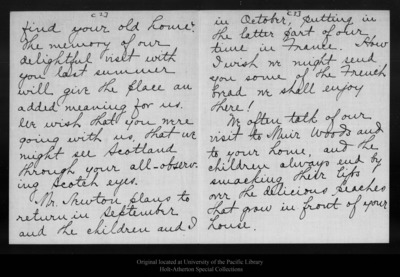 [2]
find your old home.
The memory of our
delightful visit with
you last summer
will give the place an
added meaning for us.
We wish that you were
going with us, that we
might see Scotland
through your all-observ-
ing Scotch eyes.
Mr. Newton plans to
return in September
and the children and I
[3]
in October, putting in
the latter part of our
time in France. How
I wish we might send
you some of the French
bread we shall enjoy
there!
We often talk of our
visit to Muir Woods and
to your home, and the
children always end by
smacking their lips
over the delicious peaches
that grow in front of your
house.
Original located at University of the Pacific Library
Holt-Atherton Special Collections